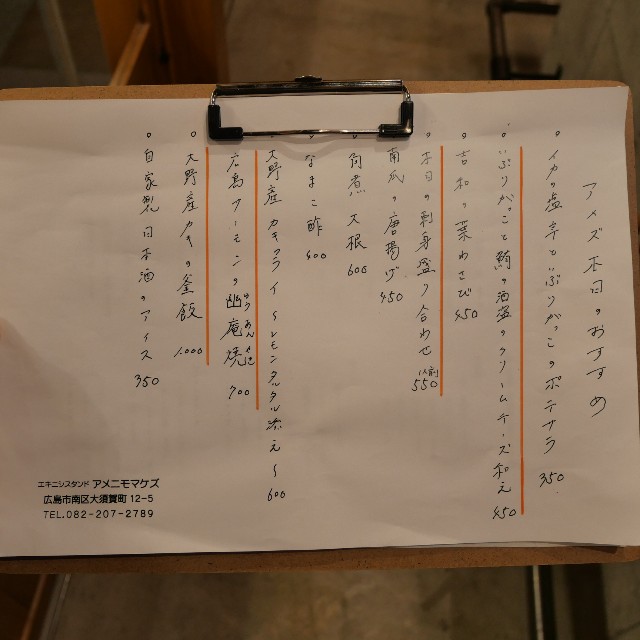 アメズ 本日のおすすめ
○イカの塩辛といぶりがっこのポテサラ 350
○いぶりがっこと鮪の酒盗のクリームチーズ和え 450
○吉和の葉わさび 450
○本日の刺身盛り合わせ (1人前) 550
○南瓜の唐揚げ 450
角煮大根 600
なまこ酢 400
大野産カキフライ 〜レモンタルタル添え〜 600
広島サーモンの幽庵焼 ゆうあんやき 700
○大野産カキの釜飯 1.000
○自家製 日本酒のアイス 350
エキニシスタンド アメニモマケズ
広島市南区大須賀町12-5
TEL.082-207-2789